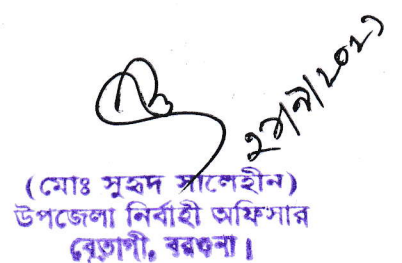 ২৭/৭/২০২১
(মোঃ সুহৃদ সালেহীন)
উপজেলা নির্বাহী অফিসার
বেতাগী, বরগুনা।